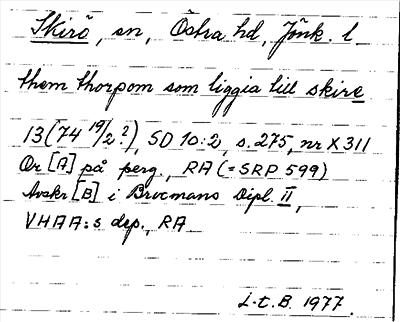 Skirö, sn, Östra hd, Jönk. l
them thorpom som liggia till skire
13(74 19/2?), SD 10:2, s. 275, nr X 311
Or [A] på perg., RA (=SRP 599)
Avskr [B] i Brocmans Dipl. II,
VHAA:s dep., RA
L.t.B. 1977.